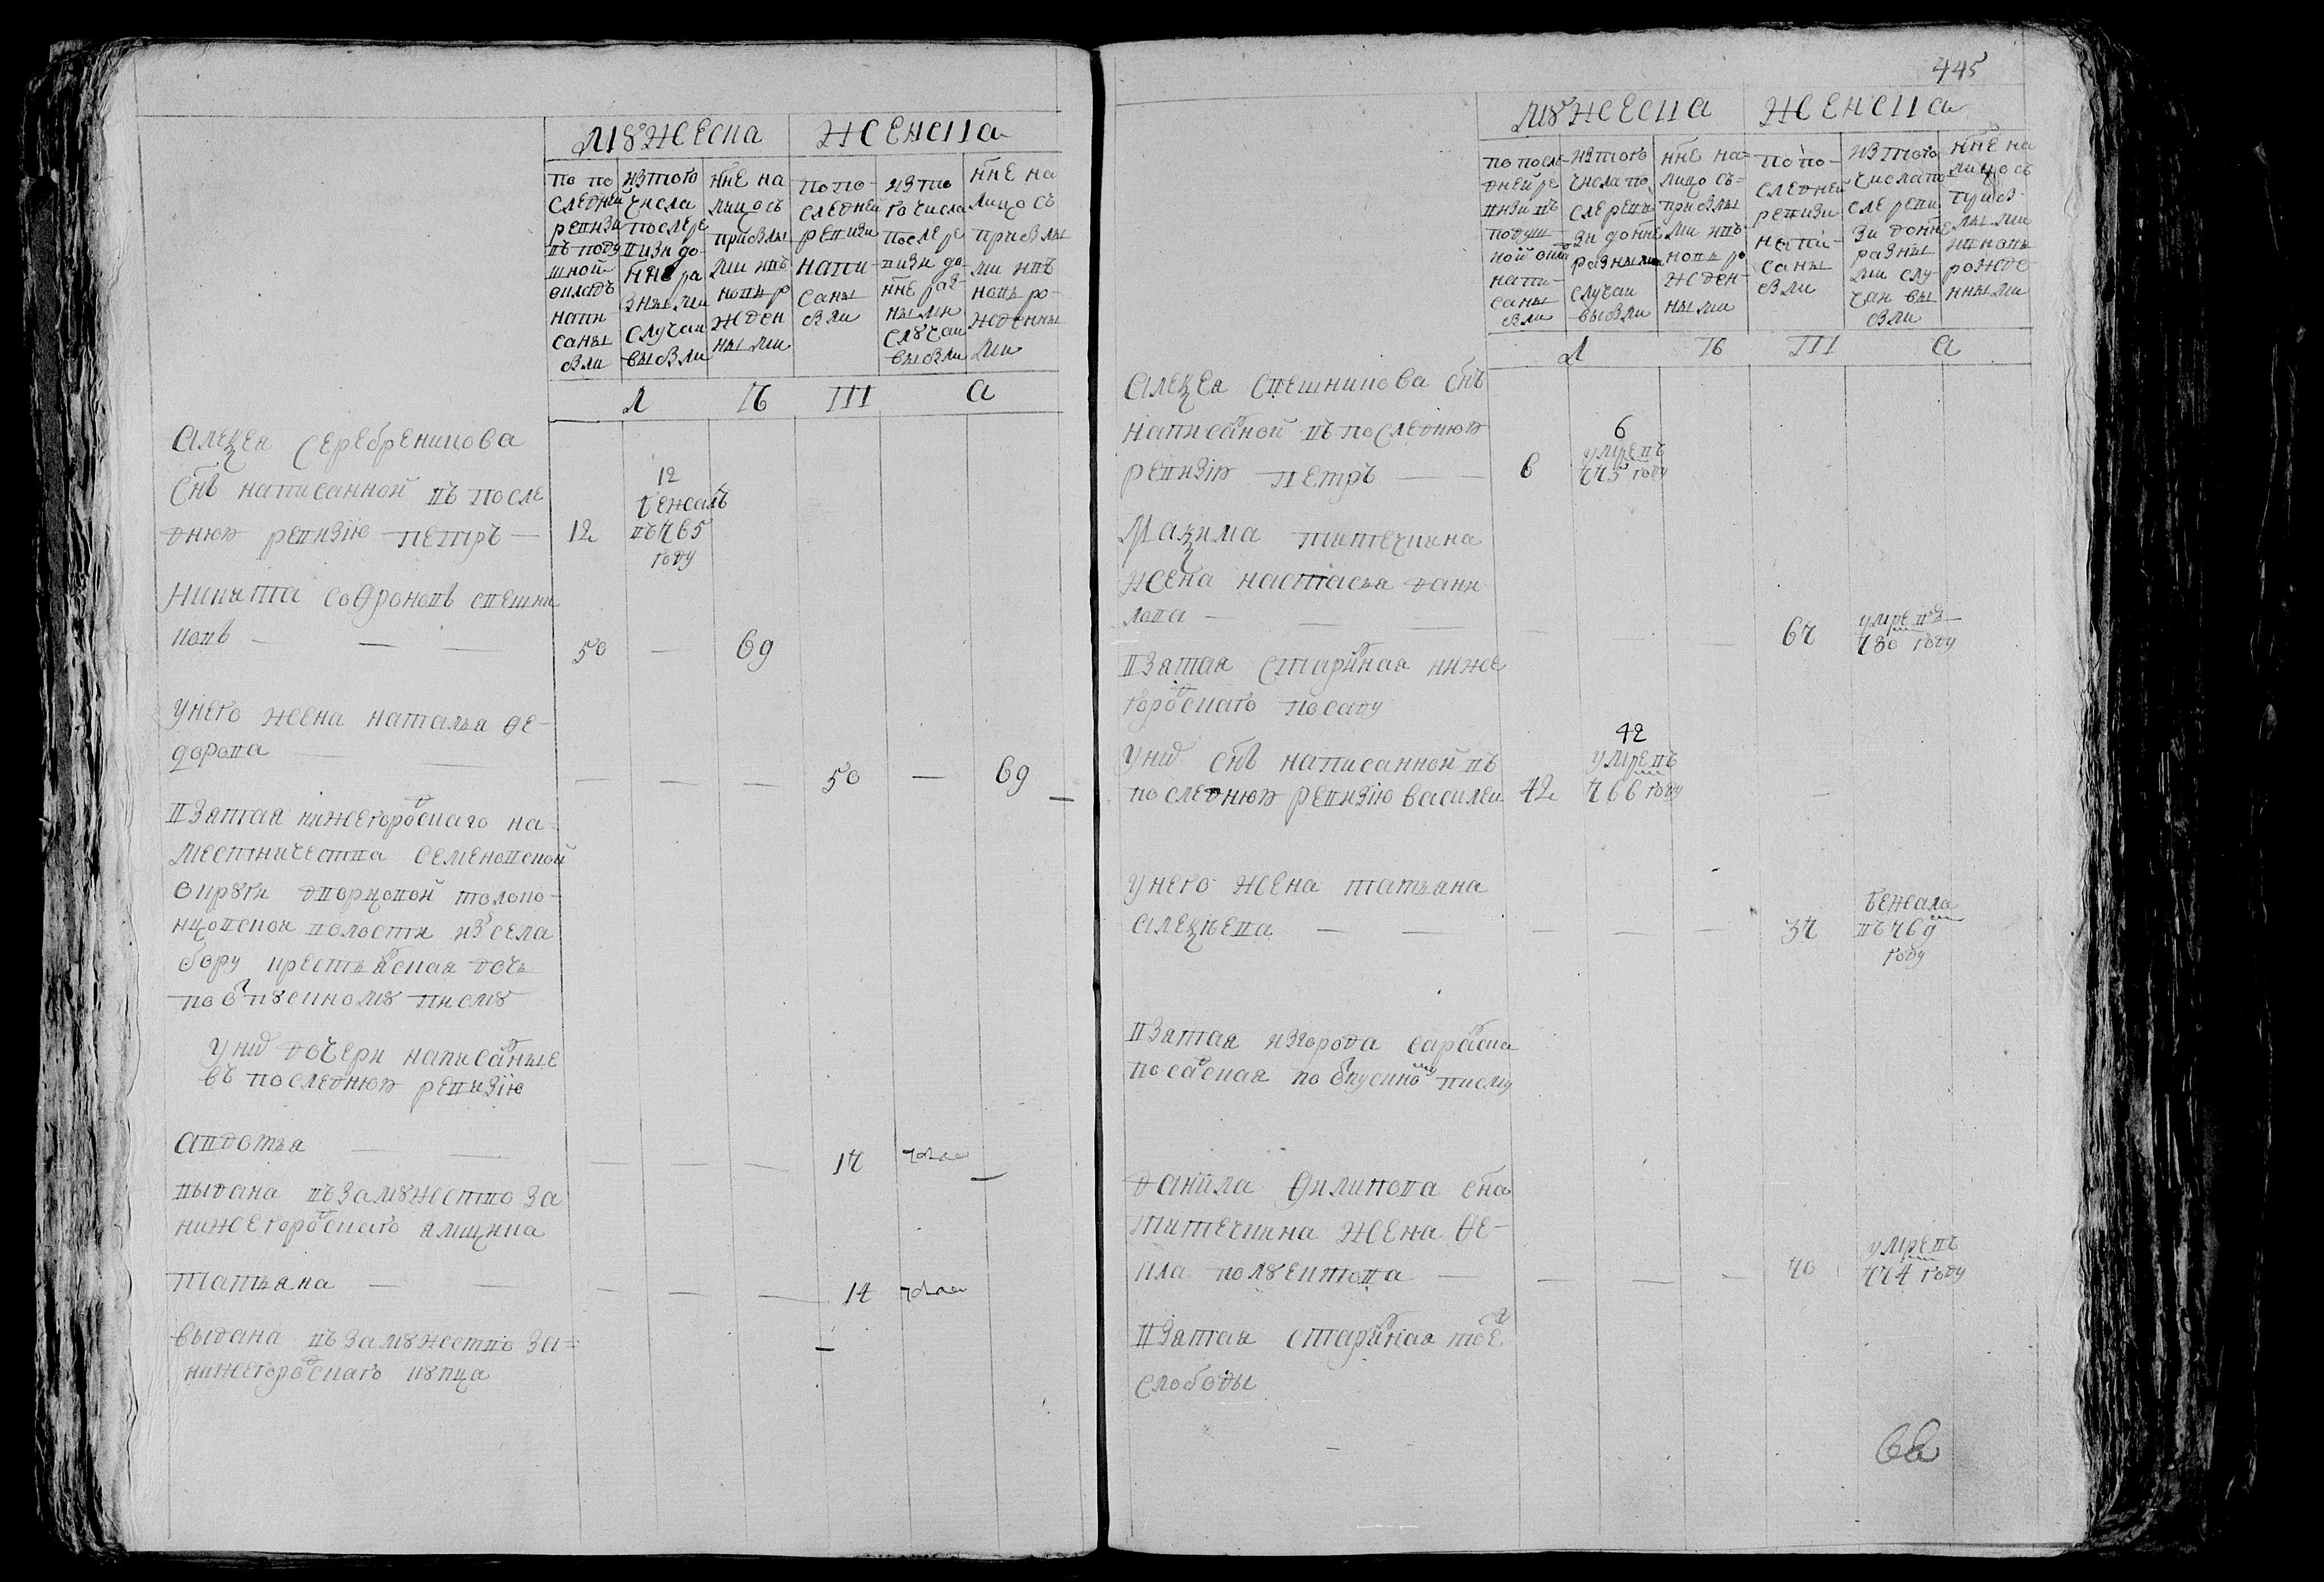 мужеска женска
по по
следней
ревизи
въ поду
шной
окладъ
напи
саны
были
изтого
числа
послере
визи до
нне ра
зными
случаи
выбыли
нне на
лицо съ
прибылы
ми ивъ
новь ро
жден
ными
по по-
следней
ревизи
напи-
саны
были
изто
го числа
после ре
визи до-
нне раз
ными
случаи
выбыли
нне на
лицо съ
прибылы
ми ивъ
новь ро-
жденны
ми
Л П Ш А
Алеѯея Серебреникова
Снъ написанной въ после
днюю ревизию петръ —
12
12
бежалъ
въ 765
году
Никита софроновъ спешни
ковъ — — —
50 — 69
Унего жена наталья фе-
дорова —
— — — 50 — 69
Взятая нижегородскаго на-
местничества семеновской
округи дворцовой толоко-
нцовской волости из села
бору крестьянская дочь
по отпускному писму
Унихъ дочери написанные
въ последнюю ревизию
Авдотья — —
— — — 17
выдана въ замужество за
нижегородскаго ямщика
Татьяна — —
— — — 14
выдана въ замужество за=
нижегородскаго купца
445
мужеска женска
по после-
дней ре
визи въ
подуш
ной окла
напи-
саны
были
изтого
числа по
сле реви
зи до нне
разными
случаи
выбыли
нне на=
лицо съ=
прибылы
ми ивъ
новь ро
жден-
ными
по по-
следней
ревизи
напи-
саны
были
изтого
числа по
сле реви
зи до нне
разны
ми слу-
чаи вы
были
нне на
лицо съ
прибы
лыми
ивновь
рожде
нными
Л П Ш А
Алеѯея спешникова снъ
написаной въ последнюю
ревизию Петръ — —
6
6
умре въ
775 году
Маѯима титечкина
жена настасья дани-
лова — — —
67 умре въ
780 году
Взятая старинная ниже
городскаго посаду
Унихъ снъ написанной въ
последнюю ревизию василей
42
42
умре въ
766 году
Унего жена татьяна
Алеѯѣева — —
— — — 37
бежала
въ 769
году
Взятая изгорода саранска
посадская по отпускному писму
Данила филипова сна
титечкина жена фе-
кла полуектова —
— — — 70 умре въ
774 году
Взятая старинная тоѣ
слободы